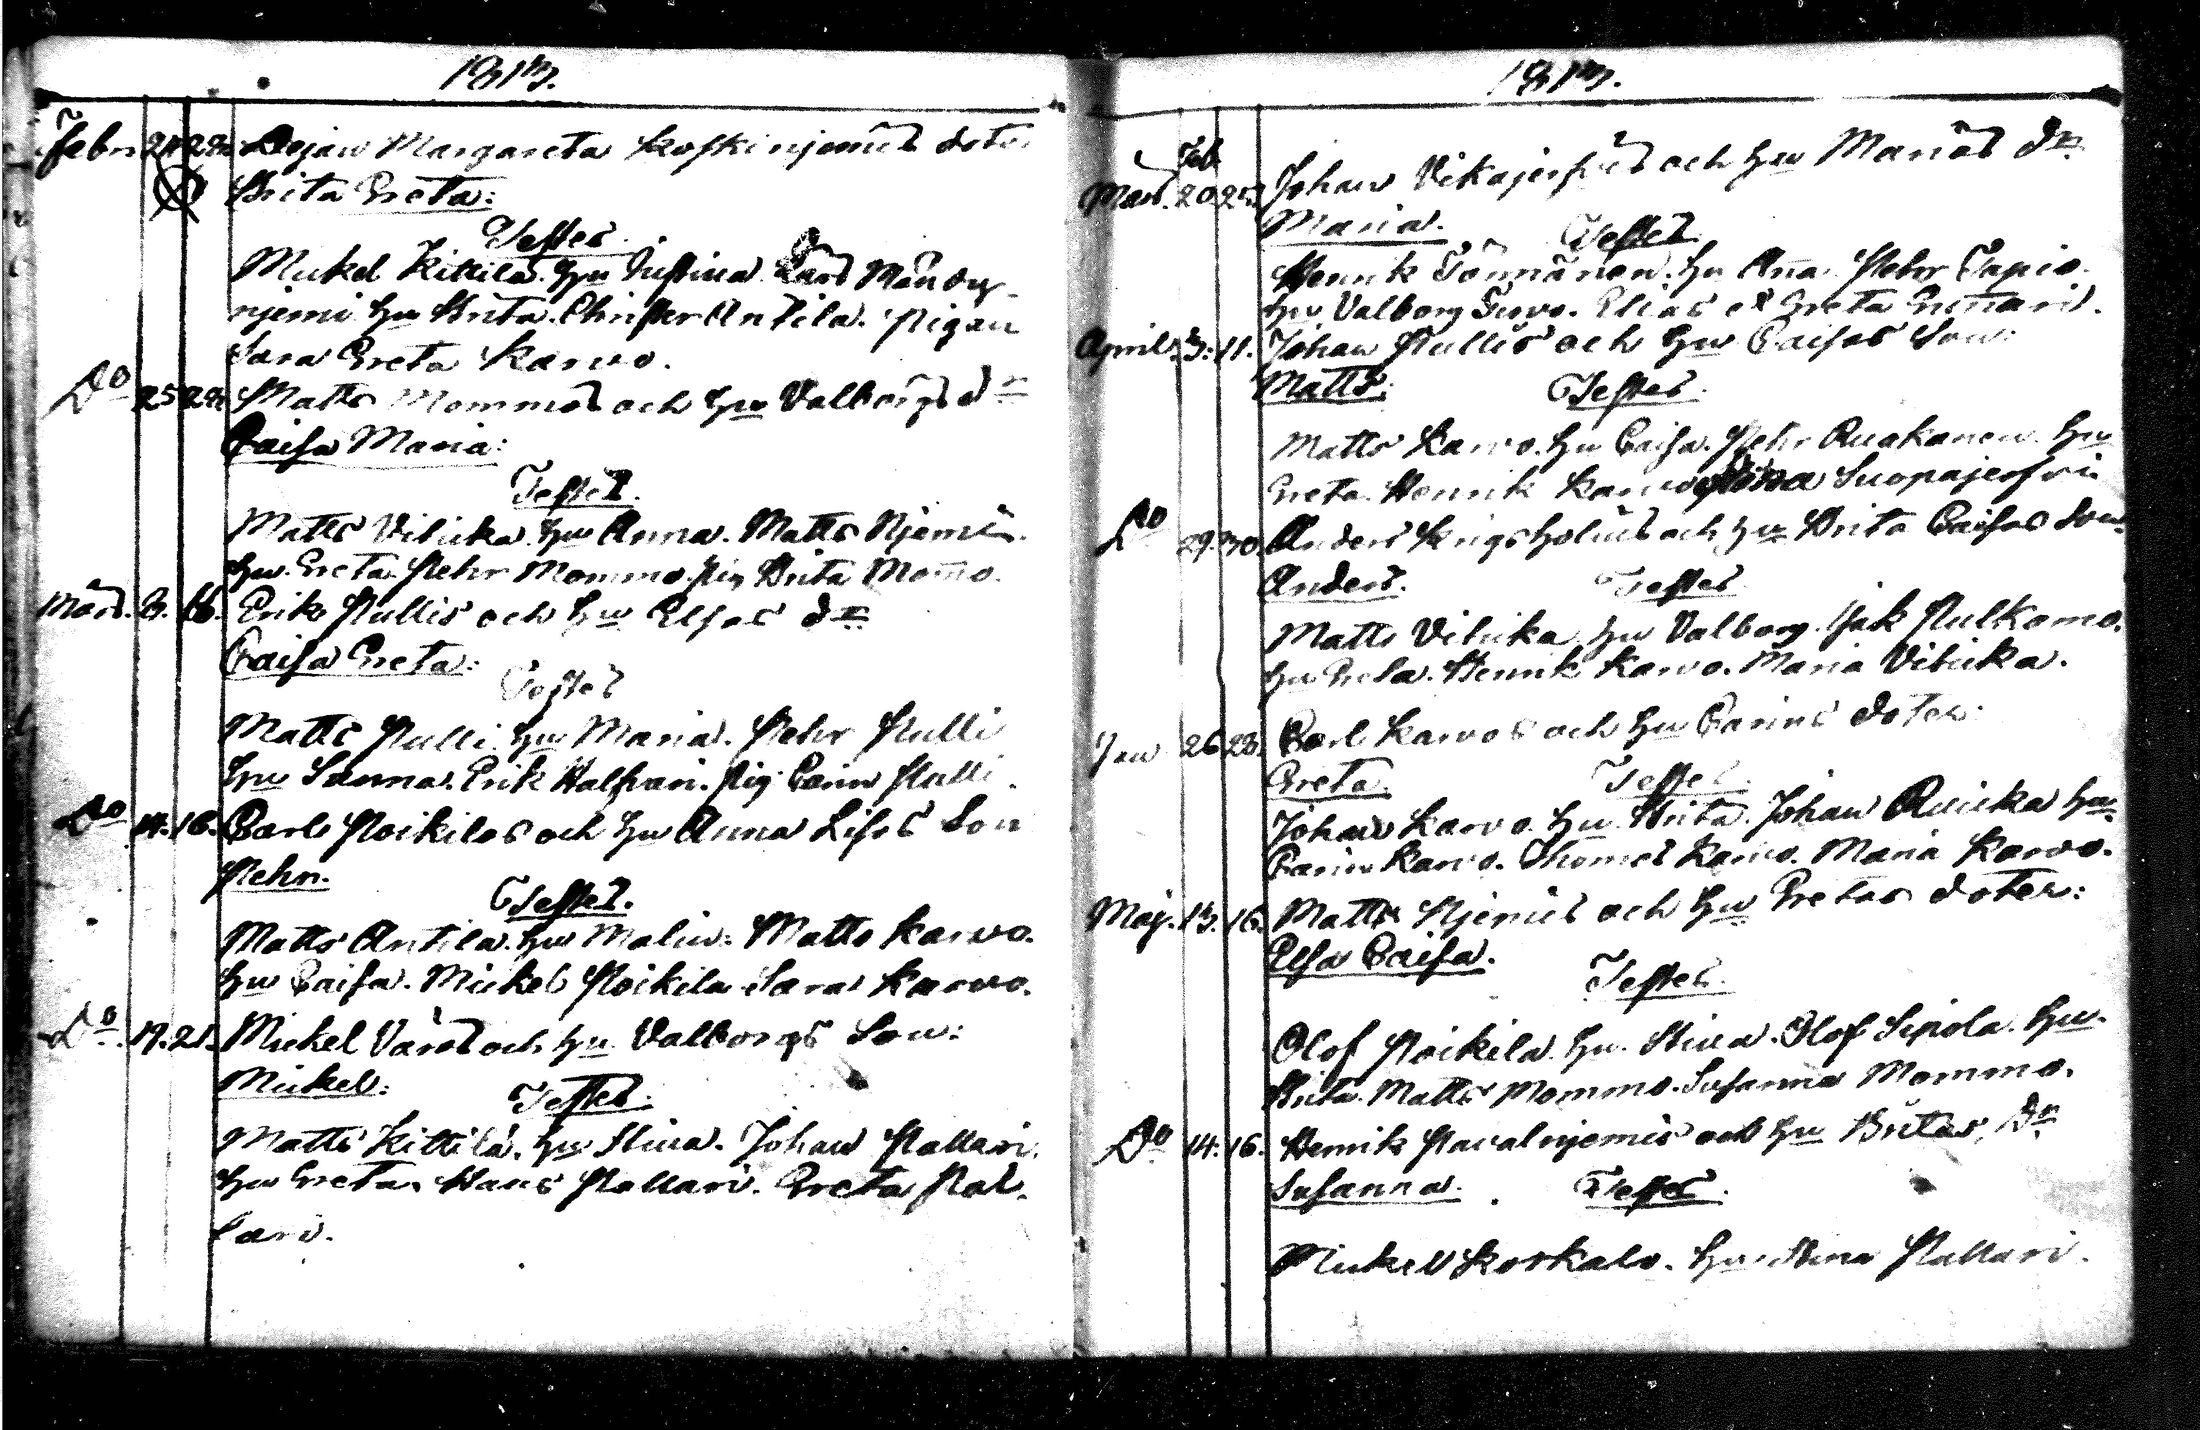 1813.
Febr. 24 28. Pigan Margareta Koskinjemis doter
Brita Greta:
Testes.
Mickel Kittilä. Hu Justina. Lars Mändy-
njemi Hu Brita. Christer Antila. Pigan
Sara Greta Karvo.
Do 25 28. Matts Mommos och Hu Valborgs dr
Caisa Maria:
Testes.
Matts Viluka. Hu Anna. Matts Njemis.
Hu. Greta. Pehr Mommo. Pig Brita Mom̄o.
Mars. 3. 16. Erik Pullis och Hu Elsas dr
Caisa Greta:
Testes
Matts Pulli. Hu Maria. Pehr Pulli
Hu Sanna. Erik Halvari. Pig. Carin Pulli.
Do 14. 16. Carl Poikilas och Hu Anna Lisas Son
Pehr.
Testes.
Matts Antila. Hu Malin: Matts Karvo.
Hu Caisa. Mickel Poikila Sara Karvo.
Do 19. 21. Mickel Väres och Hu Valborgs Son:
Mickel:
Testes.
Matts Kittilä. Hu Stina. Johan Pallari.
Hu Greta. Hans Pallari. Greta Pal-
lari.
1813.
Feb
Mars. 20 25. Johan Vikajerfvis och Hu Marias dr
Maria.
Testes.
Henrik Tönnänen. Hu An̄a. Pehr Tapio.
Hu Valborg Turvo. Elias et Greta Grenari.
April. 3. 11. Johan Pullis och Hu Caisas Son:
Matts:
Testes.
Matts Karvo. Hu Caisa. Pehr Ruakanen. Hu
Greta. Henrik Karvo Stina Suopajerfvi
Do 29. 30 Anders Krigsholms och Hu Brita Caisas Son.
Anders.
Testes
Matts Viluka. Hu Valborg. Isak Pulkamo.
Hu Greta. Henrik Karvo. Maria Viluka.
Jan 26 28. Carl Karvos och Hu Carins doter:
Greta.
Testes.
Johan Karvo. Hu. Brita. Johan Ruicka Hu.
Carin Karvo. Thomas Karvo. Maria Karvo.
Maj. 13. 16. Matts Njemis och Hu Gretas doter:
Elsa Caisa.
Testes.
Olof Poikila. Hu. Stina. Olof Sipola. Hu.
Brita. Matts Mommo. Susanna Mommo.
Do 14. 16. Henrik Pavalnjemis och Hu Britas, Dr
Susanna.
Testes.
Mickel Korkalo. Hu. Stina Pallari.